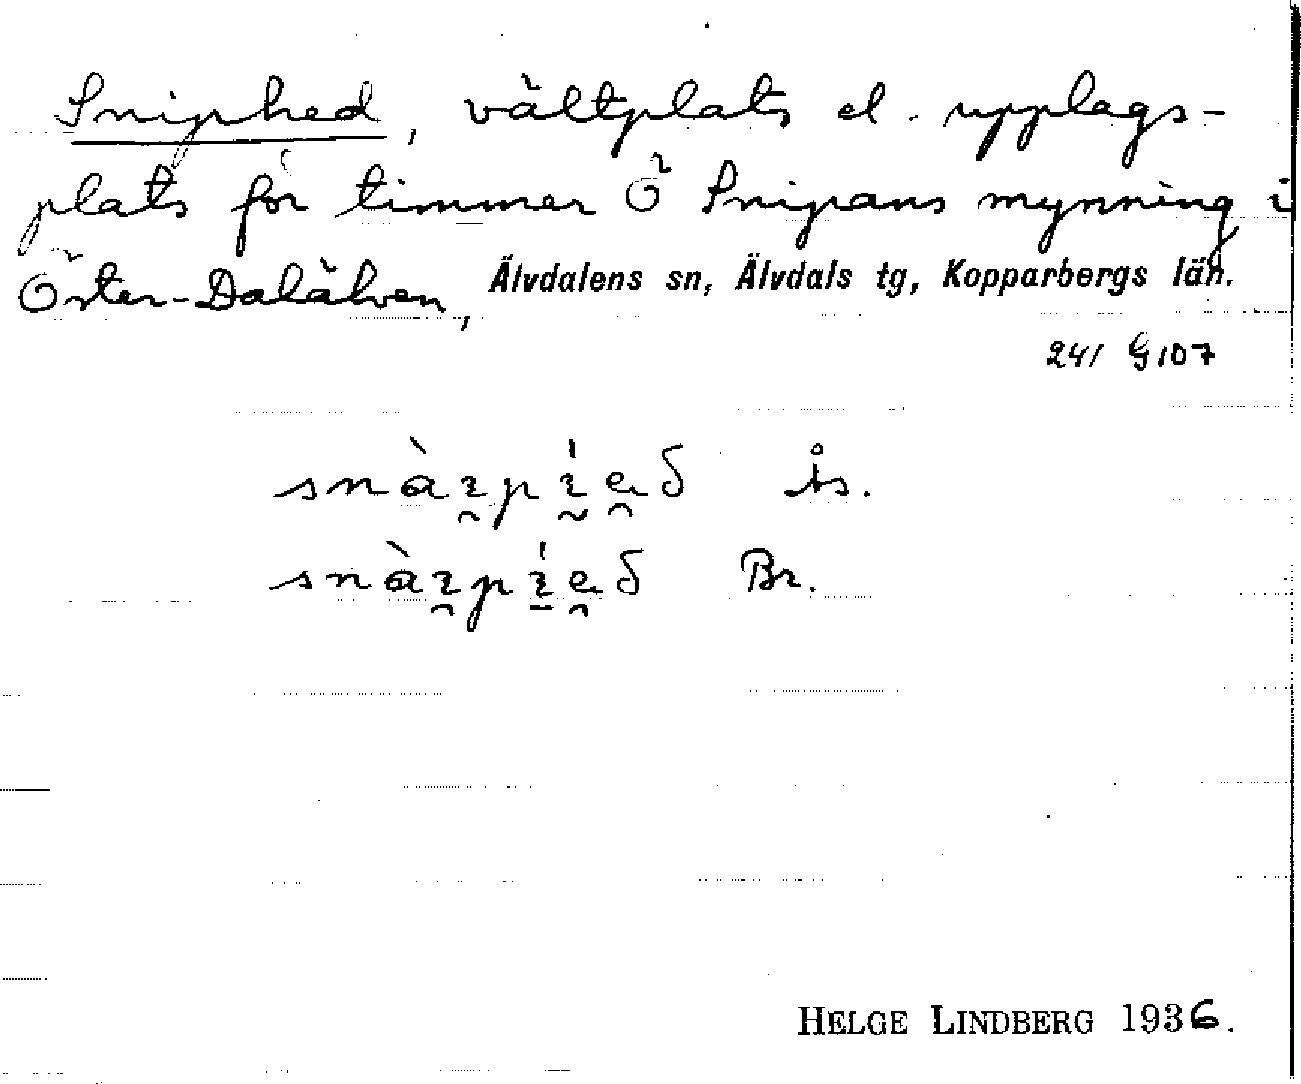 Sniphed, vältplats el. upplags-
plats för timmer Ö Snipans mynning i
Öster-Dalälven, Älvdalens sn, Älvdals tg, Kopparbergs län.
241 G107
Ås.
Br.
HELGE LINDBERG 1936.